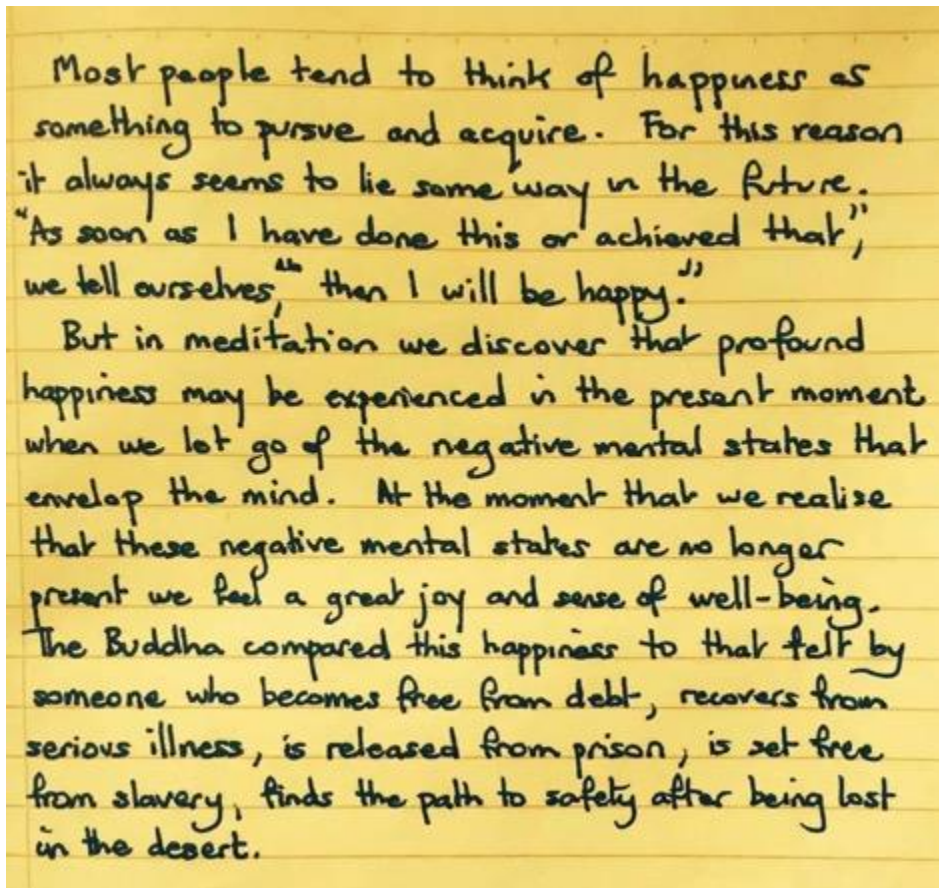 Most people tend to think of happiness as
something to pursue and acquire. For this reason
it always seems to lie some way in the future.
"As soon as I have done this or achieved that,"
we tell ourselves, "then I will be happy."
But in meditation we discover that profound
happiness may be experienced in the present moment
when we let go of the negative mental states that
envelop the mind. At the moment that we realise
that these negative mental states are no longer
present we feel a great joy and sense of well-being.
The Buddha compared this happiness to that felt by
someone who becomes free from debt, recovers from
serious illness, is released from prison, is set free
from slavery, finds the path to safety after being lost
in the desert.